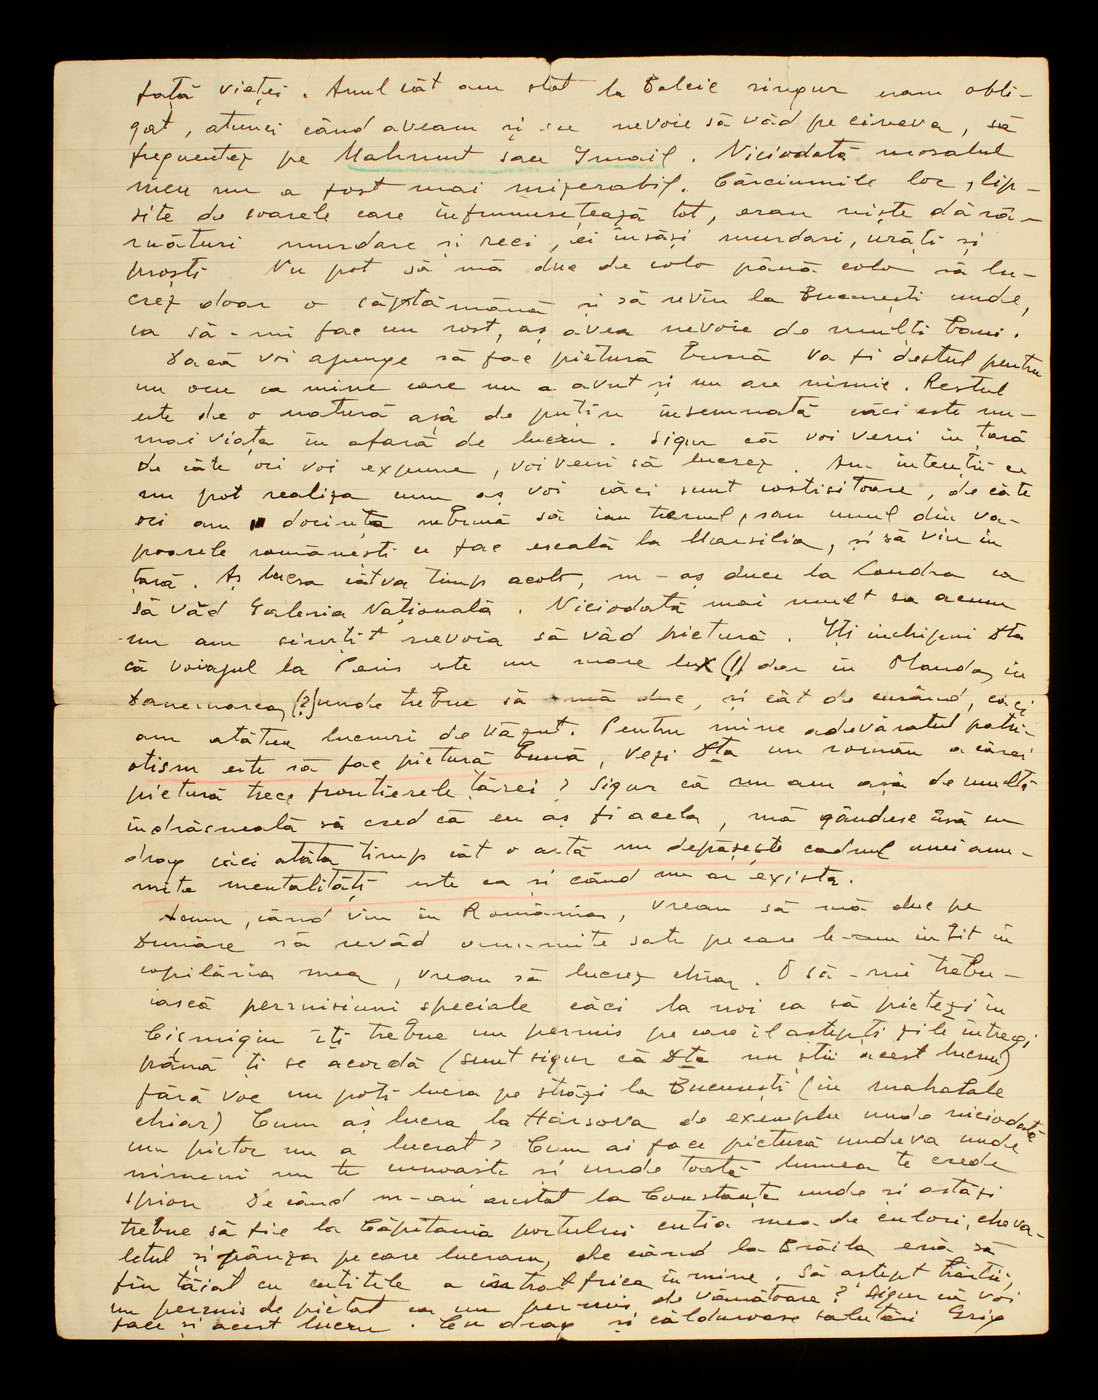 față vieței. Anul cât am stat la Balcic singur eram obli-
gat, atunci când aveam și eu nevoie să văd pe cineva, să
frequentez pe Mahmut sau Ismail. Niciodată moralul
meu nu a fost mai mizerabil. Cârciumile lor, lip-
site de soarele care înfrumusețează tot, erau niște dără-
mături murdare și reci, ei însăși murdari, urâți și
proști. Nu pot să mă duc de colo până colo să lu-
crez doar o căptămână și să revin la București unde,
ca să-mi fac un rost, aș avea nevoie de mulți bani.
Dacă voi ajunge să fac pictură bună va fi destul pentru
un om ca mine care nu a avut și nu are nimic. Restul
este de o natură așà de puțin însemnată căci este nu-
mai viața în afară de lucru. Sigur că voi veni în țară
de câte ori voi expune, voi veni să lucrez. Am intenții ce
nu pot realiza cum aș voi căci sunt costisitoare, de câte
ori am dorința nebună să iau trenul, sau unul din va-
poarele românești ce fac escală la Marsilia, și să vin în
țară. Aș lucra câtva timp acolo, m-aș duce la Londra ca
să văd Galeria Națională. Niciodată mai mult ca acum
nu am simțit nevoia să văd pictură. Iți inchipui Dta
că voiajul la Paris este un mare lux (!) dar în Olanda, în
Danemarca, (?) unde trebue să mă duc, și cât de curând, căci
am atâtea lucruri de văzut. Pentru mine adevăratul patri-
otism este să fac pictură bună, vezi Dta un român a cărei
pictură trece frontierele țărei? Sigur că nu am așà de multă
îndrăsneală să cred că eu aș fi acela, mă gândesc însă cu
drag căci atâta timp cât o artă nu depășește cadrul unei anu-
mite mentalități este ca și când nu ar exista.
Acum, când vin în România, vreau să mă duc pe
Dunăre să revăd anumite sate pe care le-am iubit în
copilăria mea, vreau să lucrez chiar. O să-mi trebu-
iască permisiuni speciale căci la noi ca să pictezi în
Cișmigiu iți trebue un permis pe care il aștepți zile întregi
până ți se acordă (sunt sigur că Dta nu știi acest lucru)
fără voe nu poți lucra pe străzi la București (în mahalale
chiar) Cum aș lucra la Hârșova de exemplu unde niciodată
un pictor nu a lucrat? Cum ai face pictură undeva unde
nimeni nu te cunoaște și unde toată lumea te crede
spion. De când m-au arestat la Constanța unde și astăzi
trebue să fie la Căpitania portului cutia mea de culori, cheva-
letul și pânza pe care lucram, de când la Brăila era să
fiu tăiat cu cuțitele a intrat frica în mine. Să aștept hârtii,
un permis de pictat ca un permis de vânătoare? Sigur că voi
face și acest lucru. Cu drag și călduroase salutări Grig